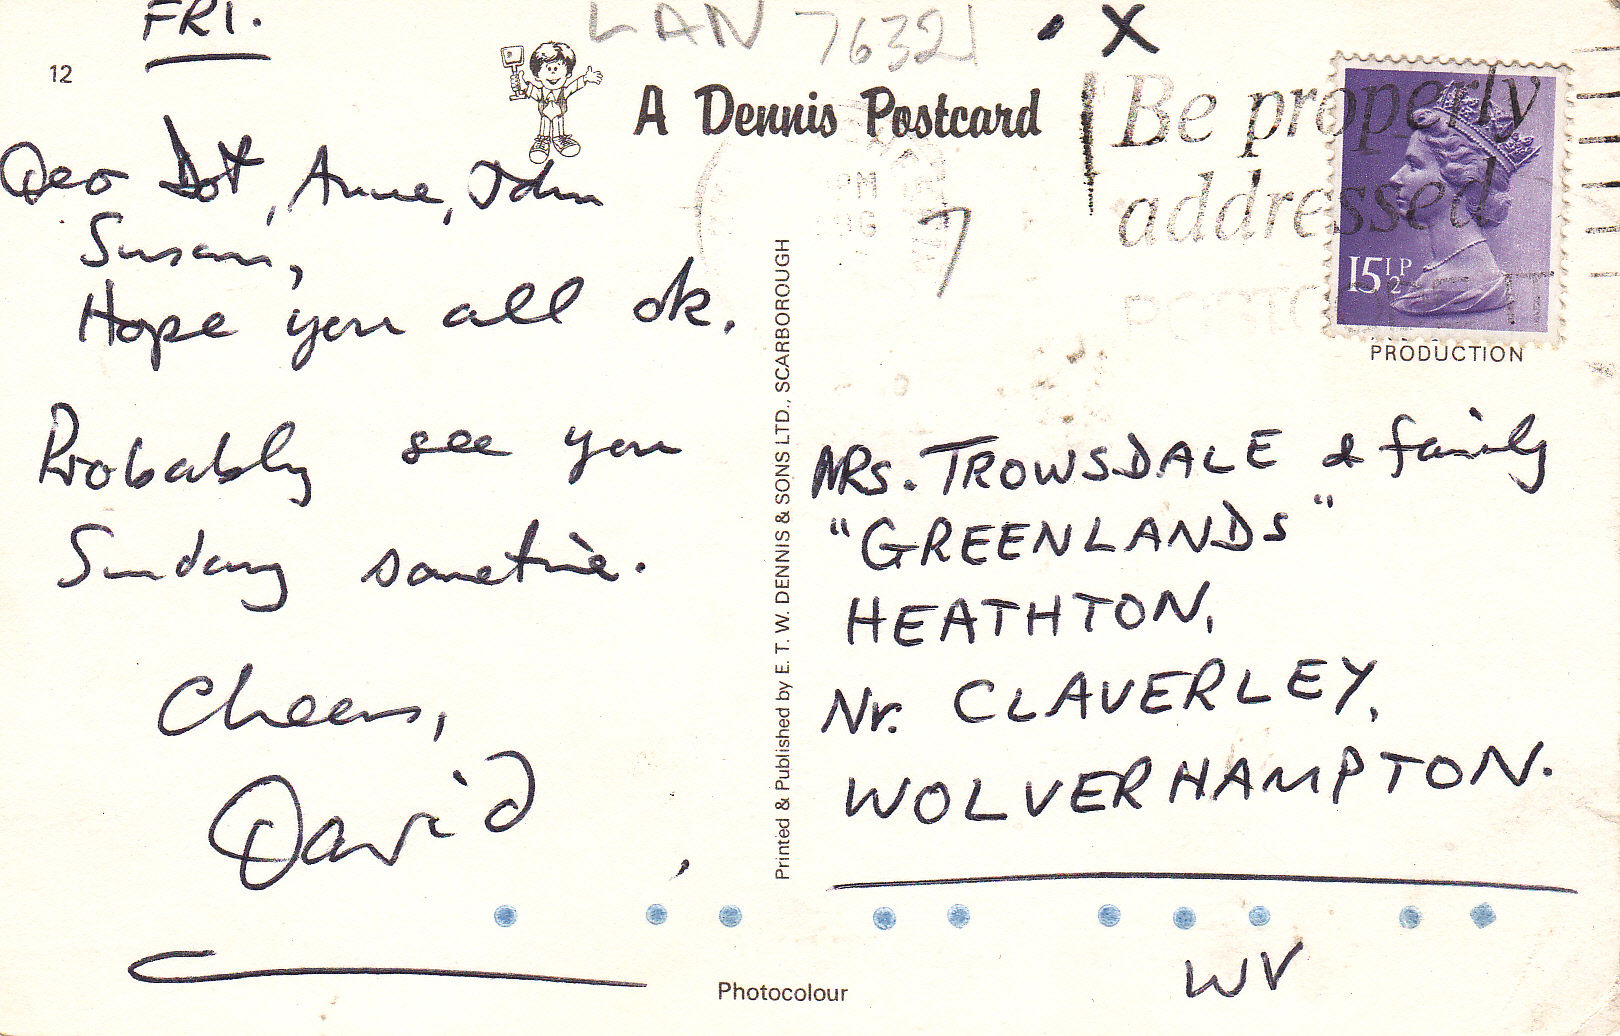 FRI.
LAN 76321 . X
12
A Dennis Postcard
Be properly
addressed
PM
7
15½P
PRODUCTION
Dear Dot, Anne, John
Susan,
Hope you all ok.
Probably see you
Sunday sometime.
Cheers,
David
Printed & Published by E. T. W. DENNIS & SONS LTD., SCARBOROUGH
MRS. TROWSDALE & family
"GREENLANDS"
HEATHTON,
Nr. CLAVERLEY,
WOLVERHAMPTON.
WV
Photocolour